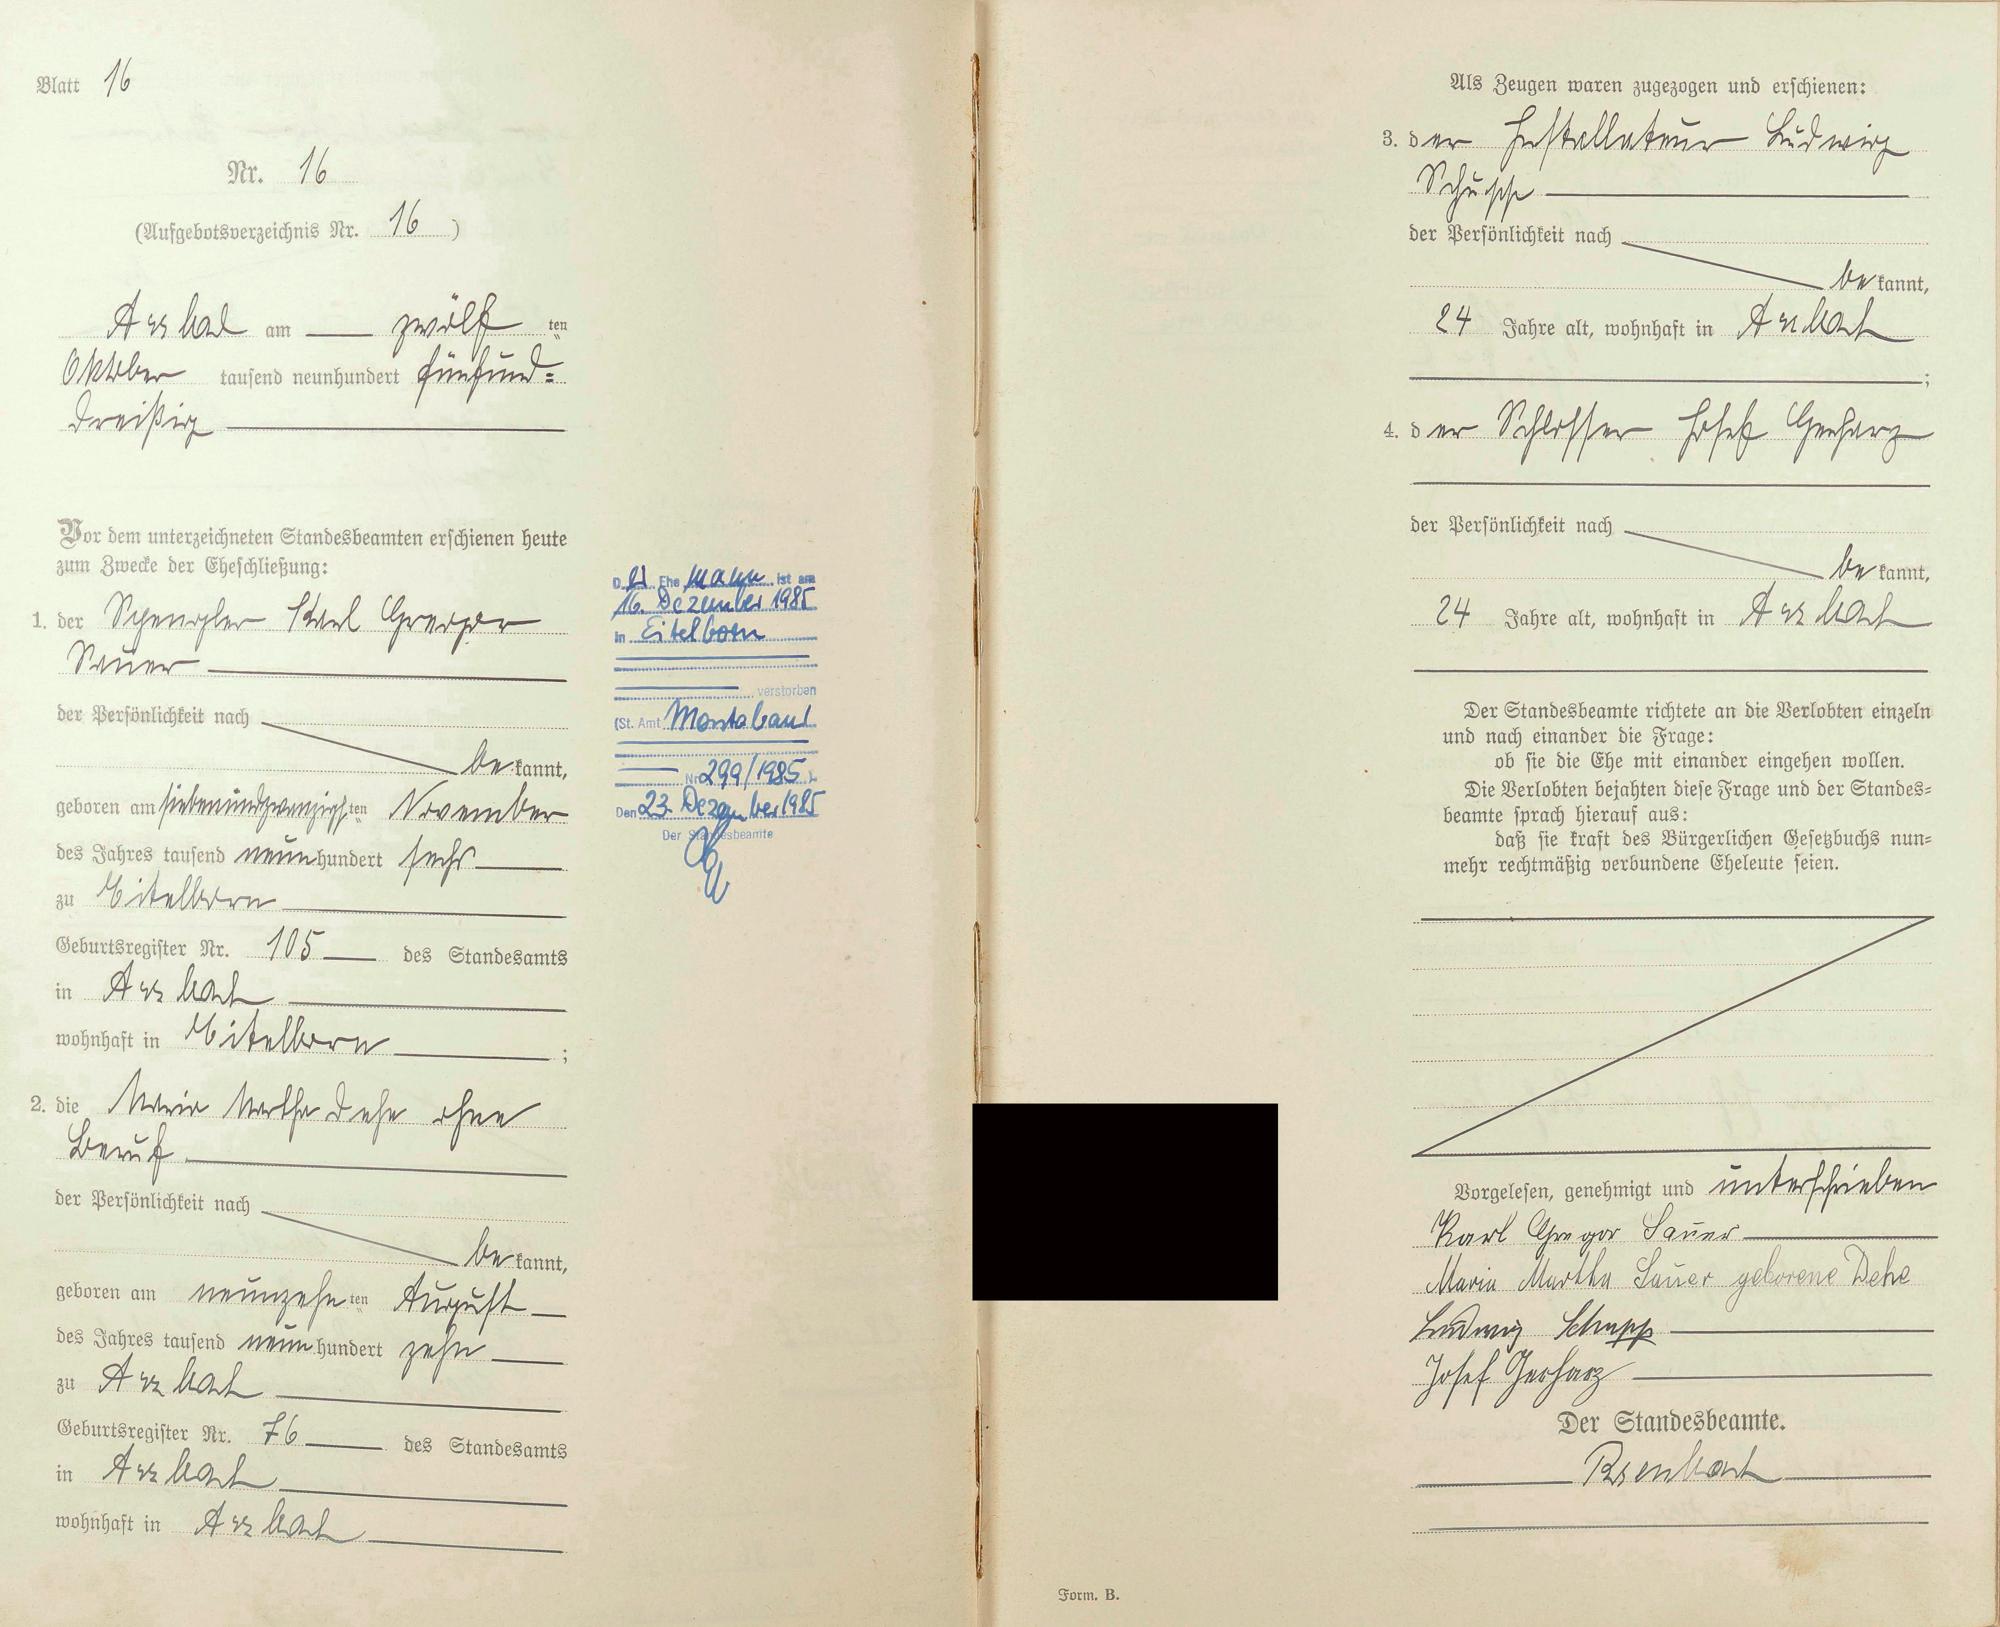 Blatt 16
Nr. 16
(Aufgebotsverzeichnis Nr. 16)
Arzbach am zwölften
Oktober tausend neunhundert fünfund=
dreißig
Vor dem unterzeichneten Standesbeamten erschienen heute
zum Zwecke der Eheschließung:
1. der Spengler Karl Gregor
Sauer
der Persönlichkeit nach
bekannt,
geboren am siebenundzwanzigsten November
des Jahres tausend neunhundert sechs
zu Eitelborn
Geburtsregister Nr. 105 des Standesamts
in Arzbach
wohnhaft in Eitelborn ;
2. die Maria Martha Dehe ohne
Beruf
der Persönlichkeit nach
bekannt,
geboren am neunzehnten August
des Jahres tausend neunhundert zehn
zu Arzbach
Geburtsregister Nr. 76 des Standesamts
in Arzbach
wohnhaft in Arzbach
Der Ehemann ist am
16. Dezember 1985
in Eitelborn
verstorben
(St. Amt Montabaur
Nr 299/1985 )
Den 23. Dezember 1985
Der Standesbeamte
Als Zeugen waren zugezogen und erschienen:
3. der Installateur Ludwig
Schupp
der Persönlichkeit nach
bekannt,
24 Jahre alt, wohnhaft in Arzbach
;
4. der Schlosser Josef Gerharz
der Persönlichkeit nach
bekannt,
24 Jahre alt, wohnhaft in Arzbach
Der Standesbeamte richtete an die Verlobten einzeln
und nach einander die Frage:
ob sie die Ehe mit einander eingehen wollen.
Die Verlobten bejahten diese Frage und der Standes=
beamte sprach hierauf aus:
daß sie kraft des Bürgerlichen Gesetzbuchs nun=
mehr rechtmäßig verbundene Eheleute seien.
Vorgelesen, genehmigt und unterschrieben
Karl Gregor Sauer
Maria Martha Sauer geborene Dehe
Ludwig Schupp
Josef Gerharz
Der Standesbeamte.
Form. B.